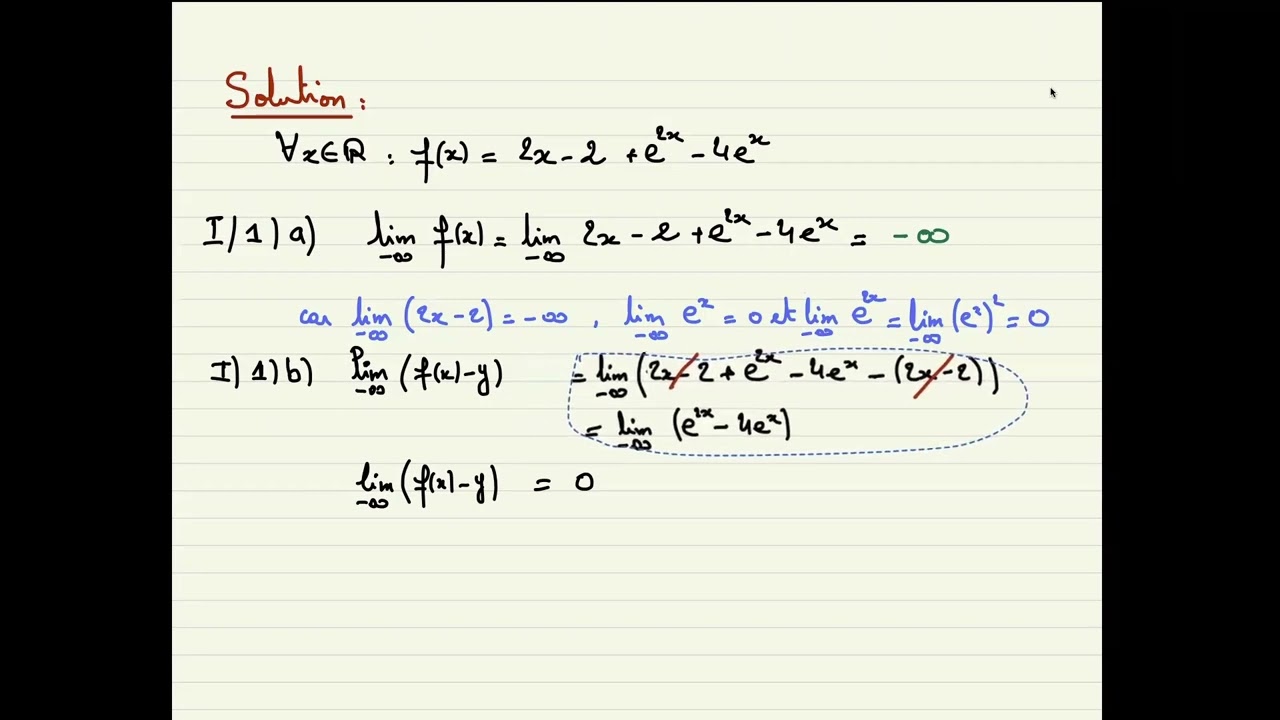 Solution :
∀x∈ℝ : f(x) = 2x - 2 + e^{2x} - 4e^x
I/ 1) a) lim_{-∞} f(x) = lim_{-∞} 2x - 2 + e^{2x} - 4e^x = -∞
car lim_{-∞} (2x-2) = -∞ , lim_{-∞} e^x = 0 et lim_{-∞} e^{2x} = lim_{-∞} (e^x)^2 = 0
I) 1) b) lim_{-∞} (f(x)-y) = lim_{-∞} (2x-2 + e^{2x} - 4e^x - (2x-2))
= lim_{-∞} (e^{2x} - 4e^x)
lim_{-∞} (f(x)-y) = 0